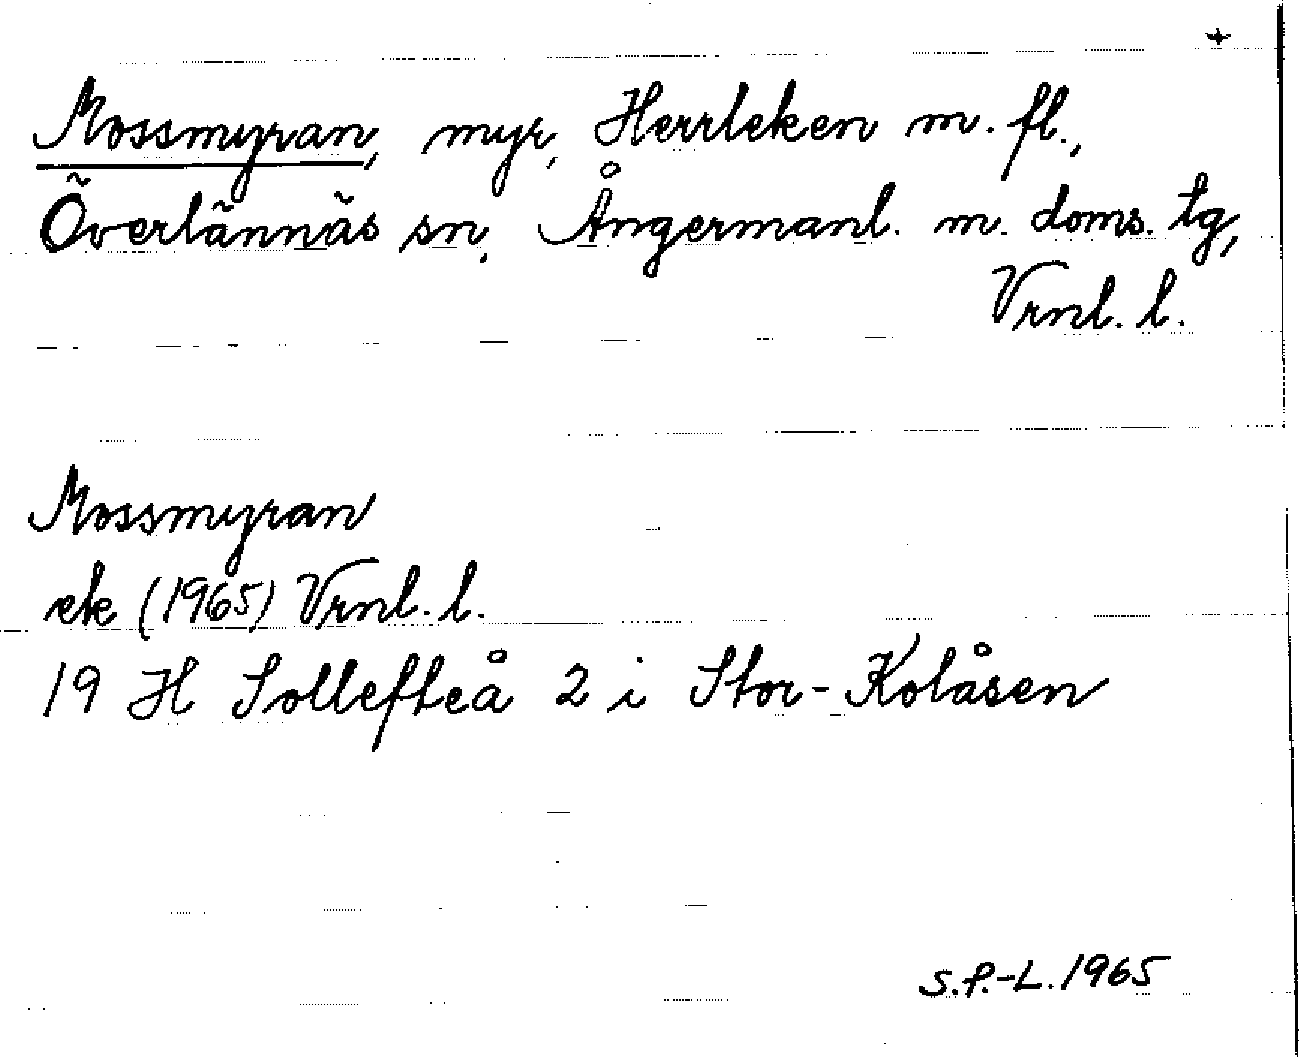 +
Mossmyran, myr, Herrleken m. fl.,
Överlännäs sn, Ångermanl. m. doms. tg,
Vrnl. l.
Mossmyran
ek (1965) Vrnl. l.
19 H Sollefteå 2 i Stor-Kolåsen
S.P.-L. 1965